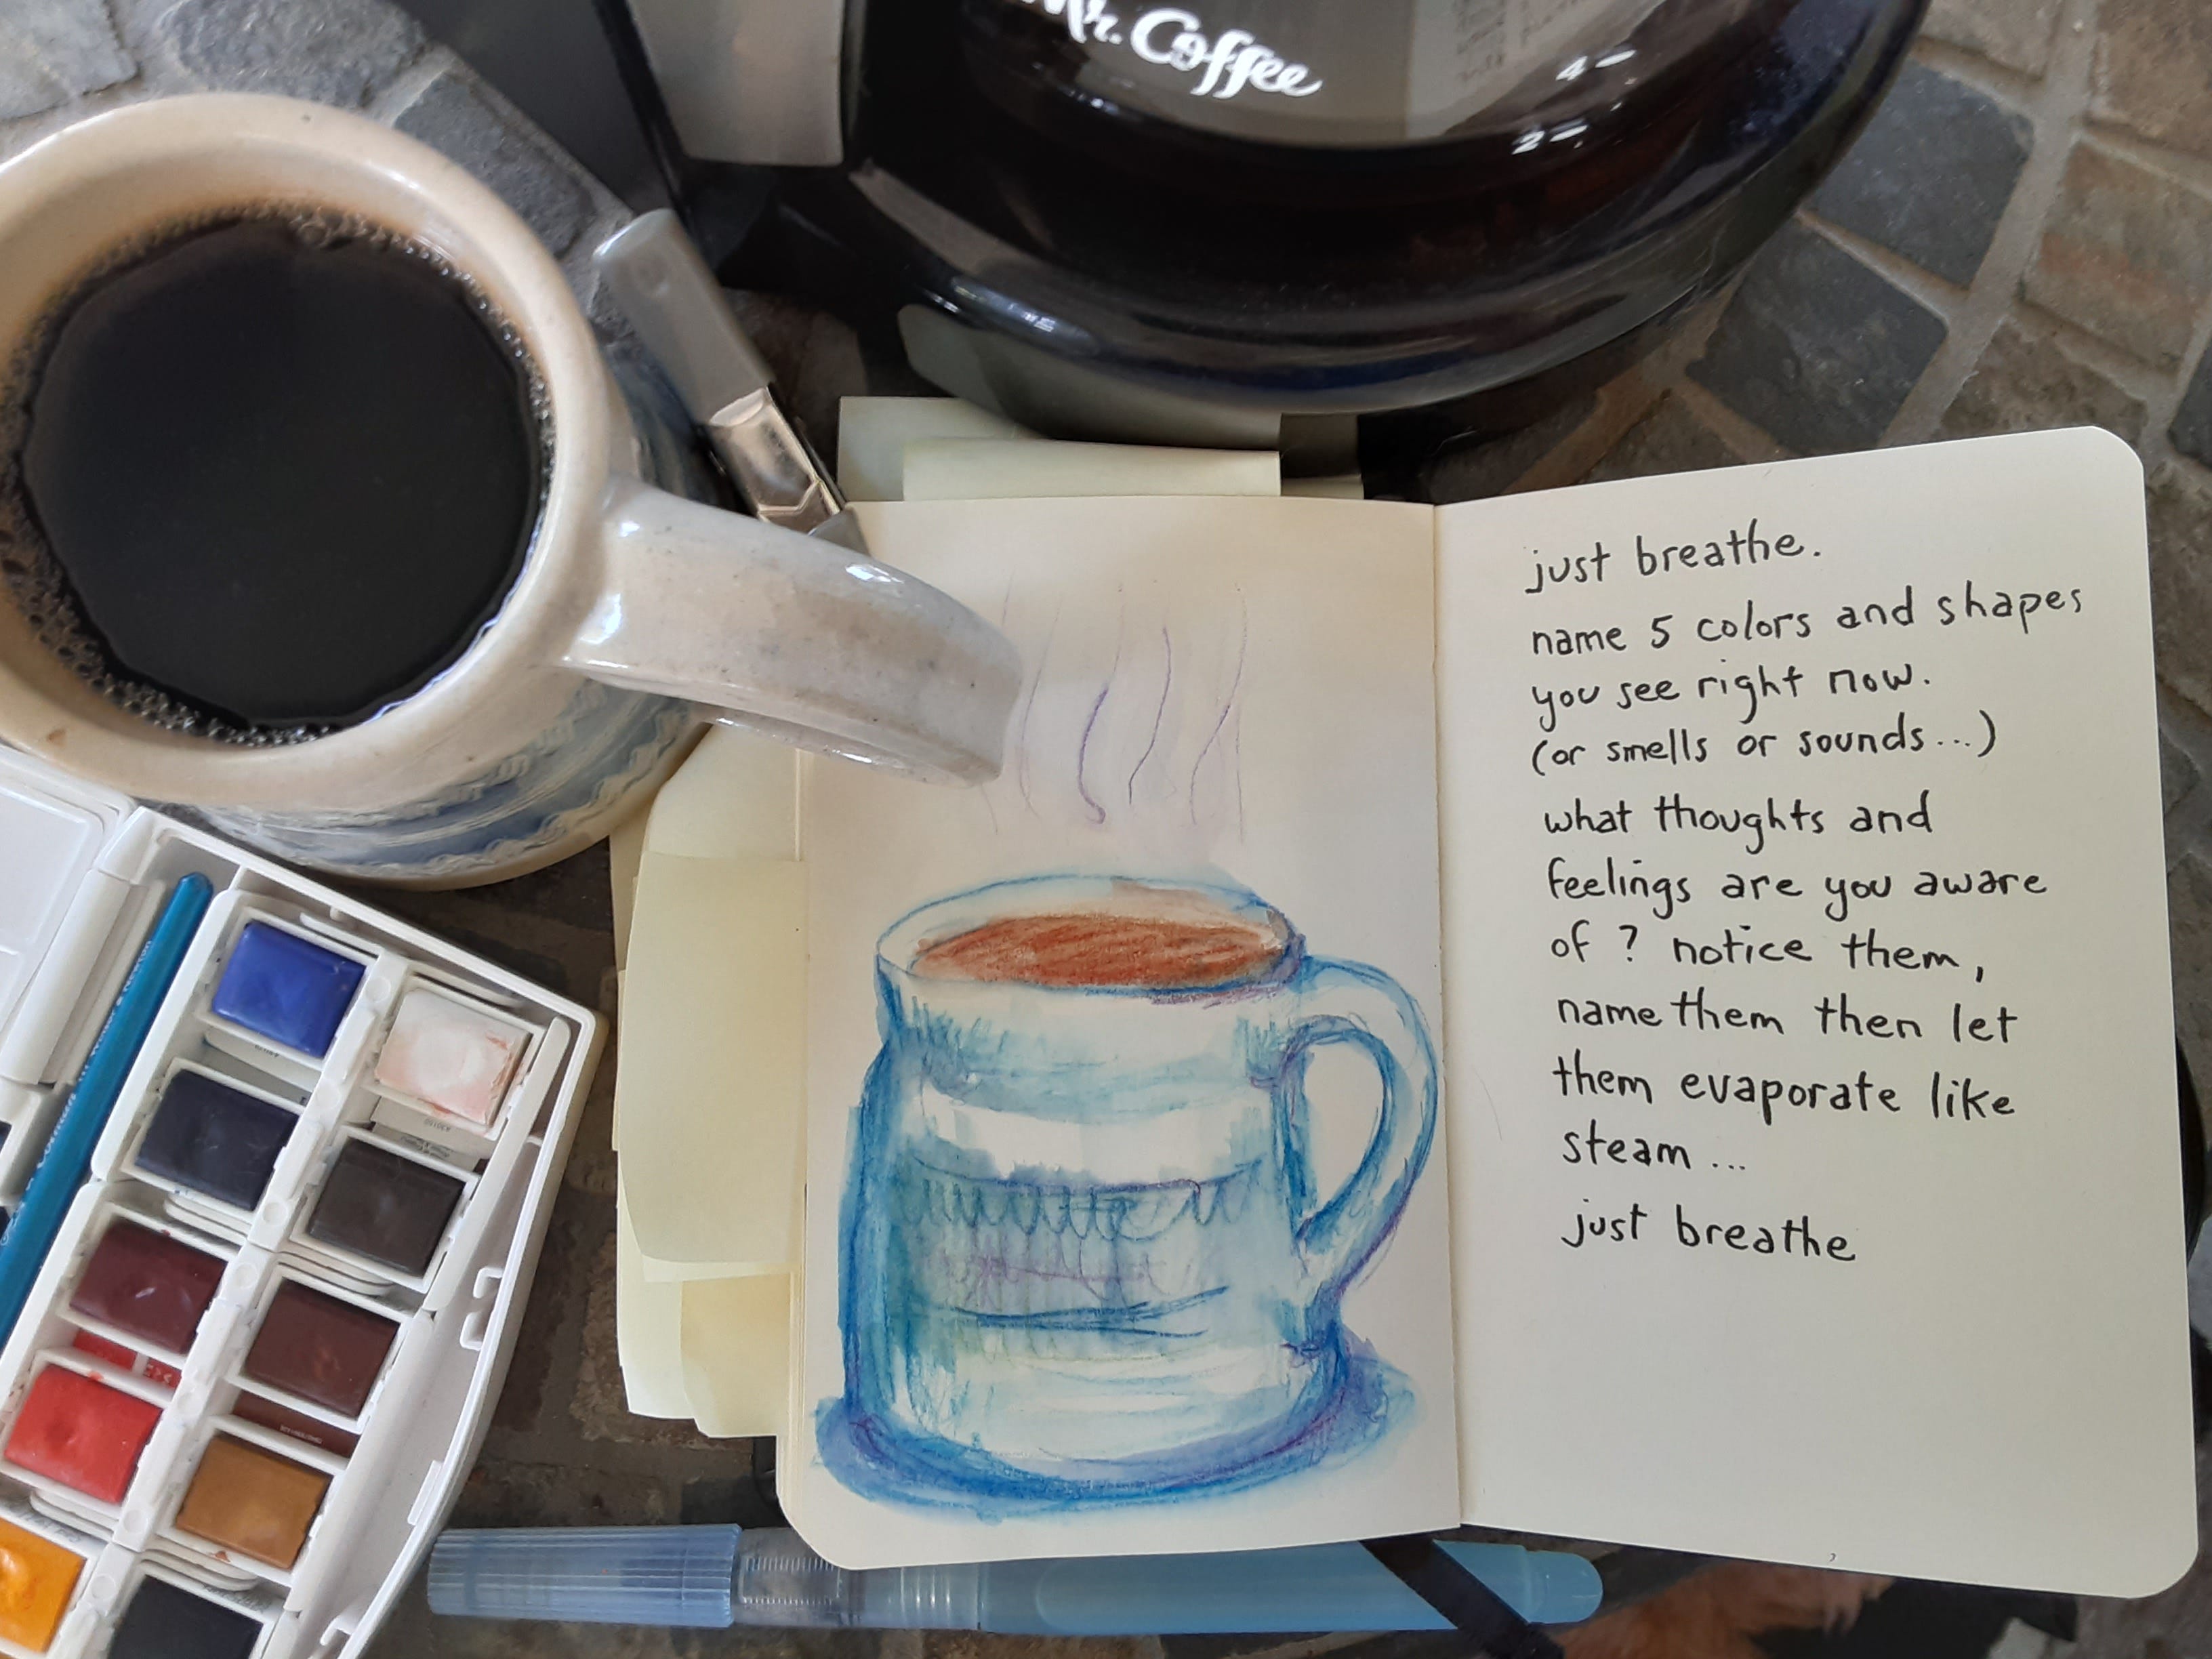 Mr. Coffee
4
2
just breathe.
name 5 colors and shapes
you see right now.
(or smells or sounds...)
what thoughts and
feelings are you aware
of? notice them,
name them then let
them evaporate like
steam...
just breathe